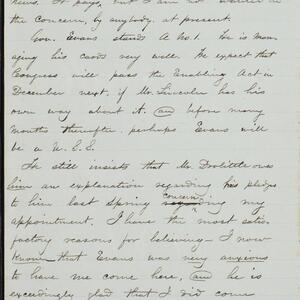 news. It pays, but I am not
the concern, by anybody, at present.
Gov. Evans stands A No. 1. He is man-
aging his cards very well. We expect that
Congress will pass the Enabling Act in
December next, if Mr. Lincoln has his
own way about it, and before many
months thereafter perhaps Evans will
be a U.S.S.
He still insists that Mr. Doolittle owes
him an explanation regarding his pledges
to him last Spring concerning my
appointment. I have the most satis-
factory reasons for believing - I now
know - that Evans was very anxious
to have me come here, and he is
exceedingly glad that I did come